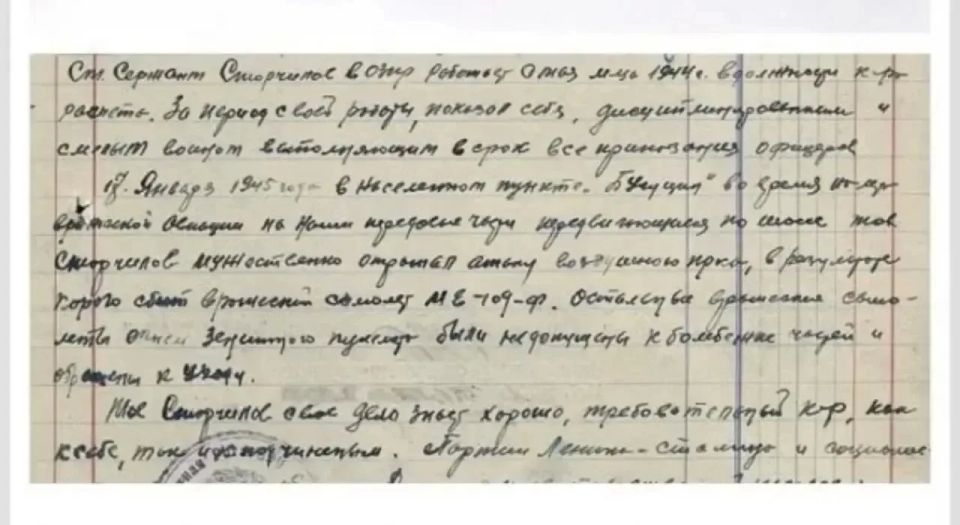 Ст. Сержант Сторчилов в озпр работает с мая м-ца 1944г. в должности к-ра
расчета. За период своей работы, показал себя, дисциплинированным и
смелым воином выполняющим в срок все приказания офицеров
17. Января 1945 года в населенном пункте во время
вражеской авиации на наши передовые части передвигающиеся по шоссе тов
Сторчилов мужественно отражал атаку воздушного врага, в результате
которого сбит вражеский самолет МЕ-109-Ф. Остальные вражеские само-
леты огнем Зенитного пулемета были недопущены к бомбежке частей и
обращены к уходу.
Тов Сторчилов свое дело знает хорошо, требовательный к-р, как
к себе, так и подчиненным. Партии Ленина-Сталина и социалис